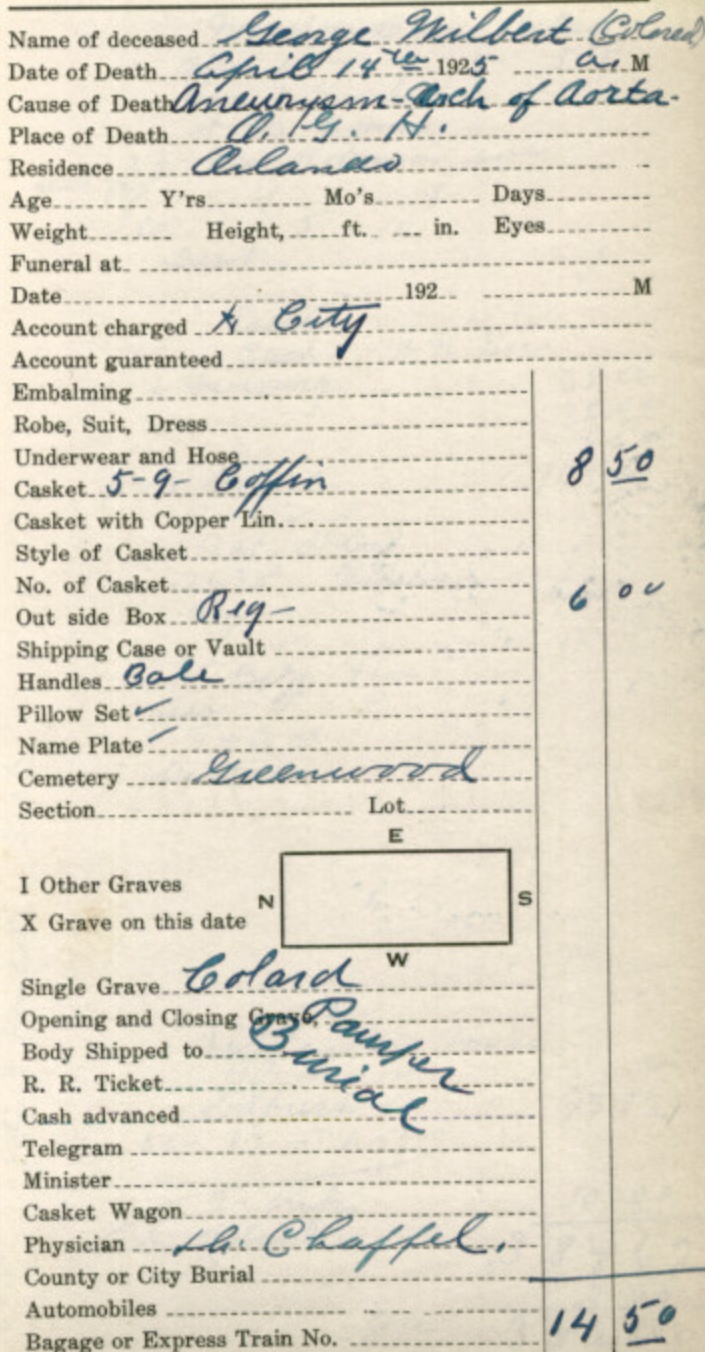 Name of deceased George Wilbert (Colored)
Date of Death April 14th 1925 a. M
Cause of Death Aneurysm - Arch of Aorta -
Place of Death O. G. H.
Residence Orlando
Age Y'rs Mo's Days
Weight Height, ft. in. Eyes
Funeral at
Date 192 M
Account charged City
Account guaranteed
Embalming
Robe, Suit, Dress
Underwear and Hose
Casket 5-9- Coffin 8 50
Casket with Copper Lin.
Style of Casket
No. of Casket
Out side Box Reg- 6 00
Shipping Case or Vault
Handles Bale
Pillow Set ✓
Name Plate
Cemetery Greenwood
Section Lot
E
I Other Graves
N S
X Grave on this date
W
Single Grave Colard
Opening and Closing Grave, Pauper
Body Shipped to Burial
R. R. Ticket
Cash advanced
Telegram
Minister
Casket Wagon
Physician Chaffel.
County or City Burial
Automobiles 14 50
Bagage or Express Train No.